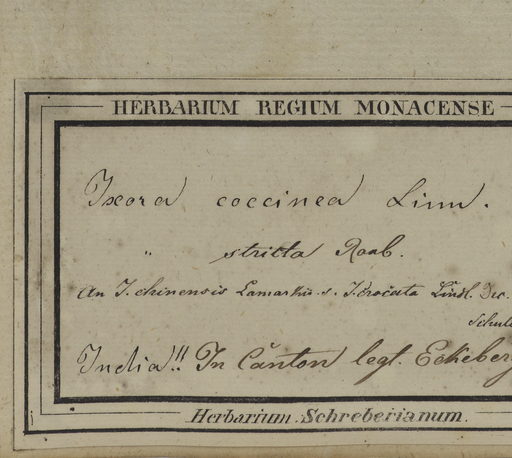 HERBARIUM REGIUM MONACENSE
Ixora coccinea Linn.
" stricta Roxb.
An I. chinensis Lamarkii. s. I. crocata Lindl. Dec.
Schult
India!! In Canton legt. Eckeberg
Herbarium Schreberianum.